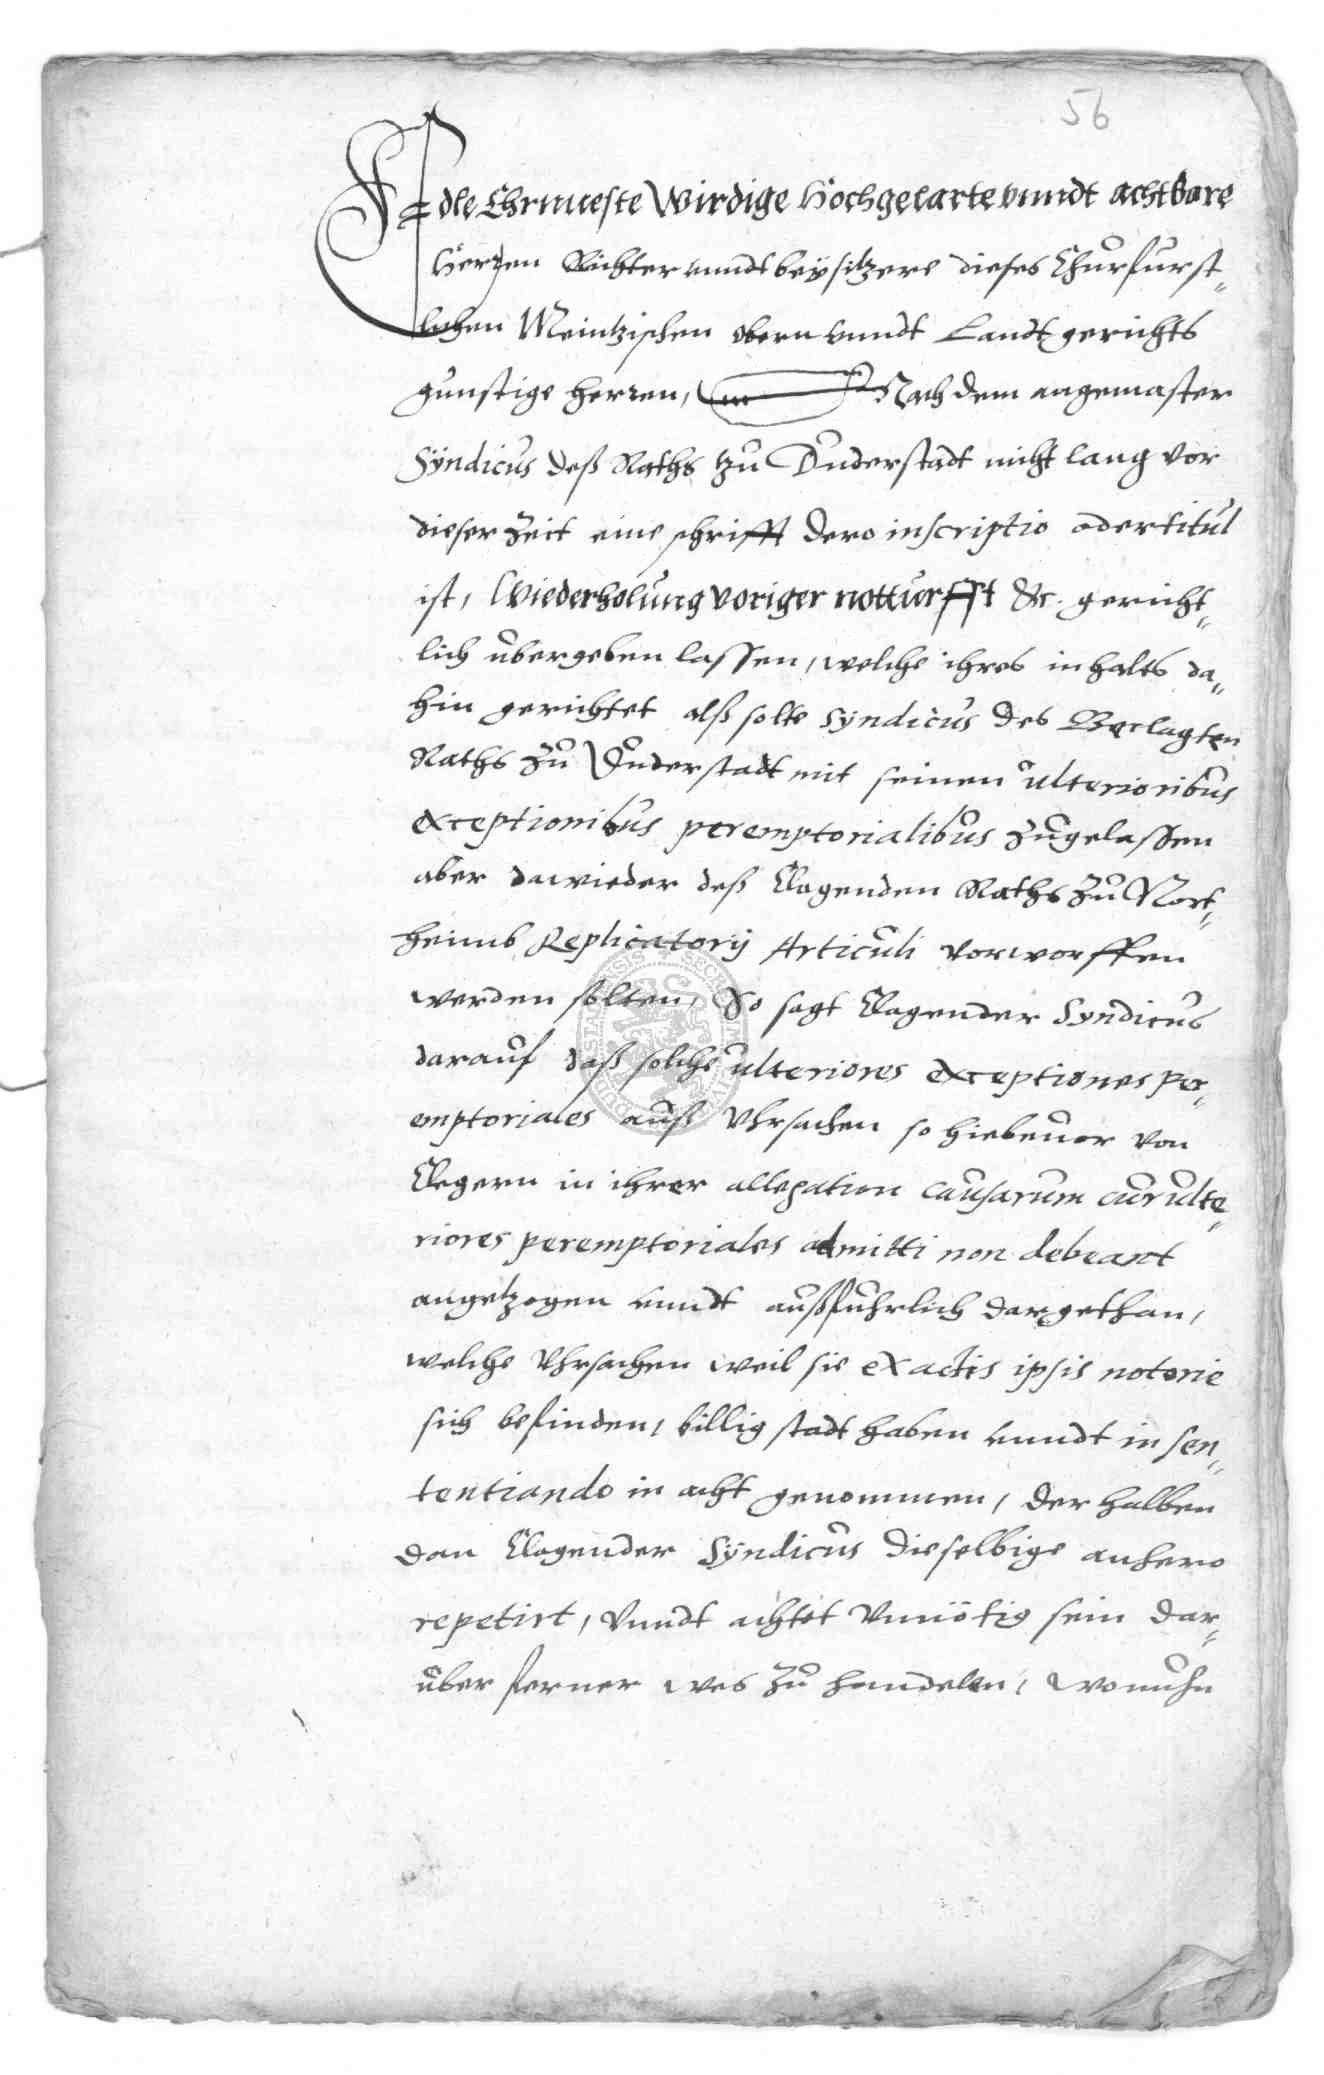 56
Edle Ehrnueste Wirdige Hochgelarte vnndt achtbare
Herren Richter vnndt beÿsitzere dieses Churfurst-
lichen Meintzischen obern vnndt Landtgerichts
gunstige herren, Nach dem angemaster
Sÿndicus deß Raths tzu Duderstadt nicht lang vor
dieser Zeit eine schrifft dero inscriptio oder titul
ist, Wiederholung voriger notturfft &c. gericht-
lich vbergeben lassen, welche ihres inhalts da-
hin gerichtet alß solte Sÿndicus des Beclagten
Raths zu Duderstadt mit seinen ulterioribus
exceptionibus peremptorialibus zugelassen
aber dawieder deß Clagenden Raths zu Nort-
heimb Replicatorij Articuli vorworffen
werden solten, So sagt Clagender Sÿndicus
darauf daß solche ulteriores exceptiones per-
emptoriales auß Vhrsachen so hiebeuor von
Clegern in ihrer allegation causarum cur ulte-
riores peremptoriales admitti non debeant
angetzogen vnndt außfuhrlich dargethan,
welche Vhrsachen weil sie ex actis ipsis notorie
sich befinden, billig stadt haben vnndt in sen-
tentiando in acht genommen, derhalben
dan Clagender Sÿndicus dieselbige anhero
repetirt, Vnndt achtet Vnnötig sein dar-
uber ferner was zu handelen, wo nuhn